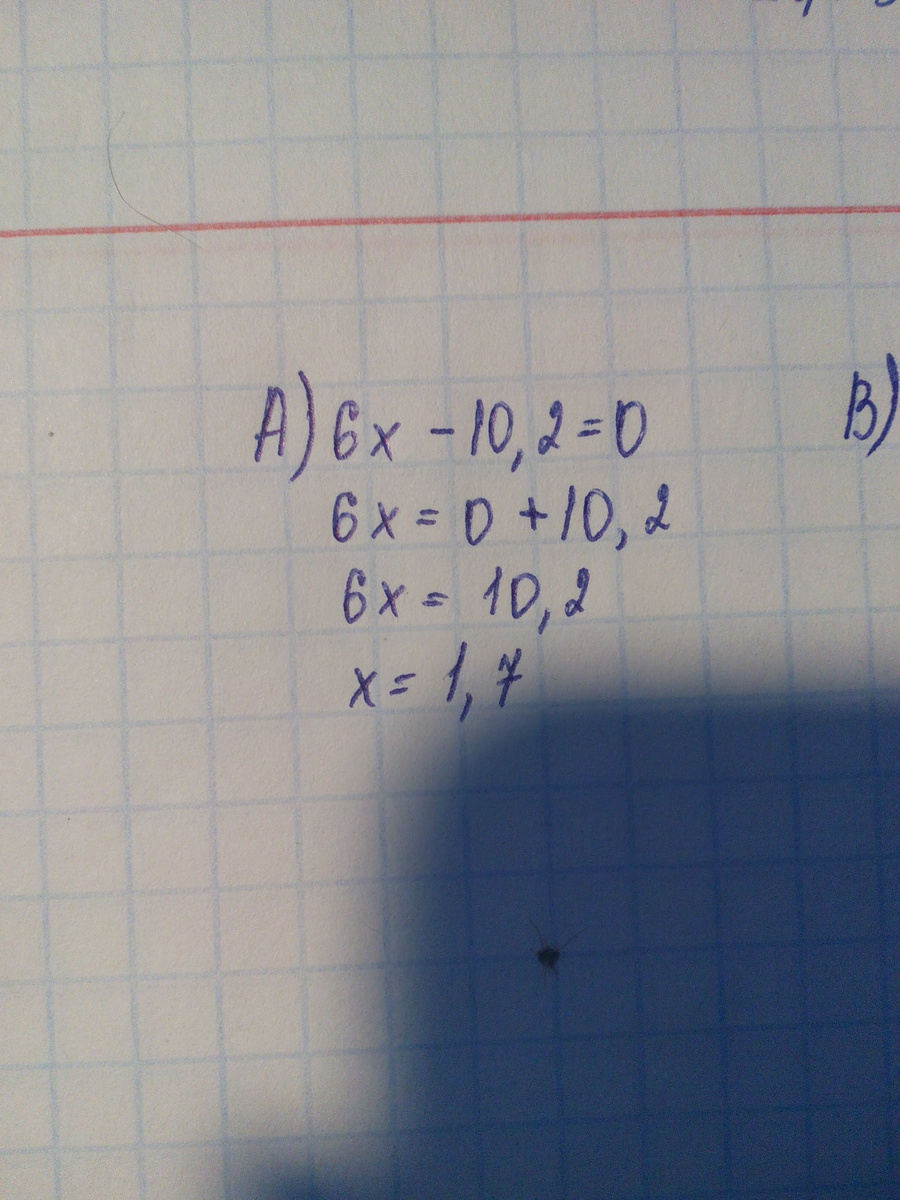 A) 6x - 10,2 = 0
6x = 0 + 10,2
6x = 10,2
x = 1,7
B)